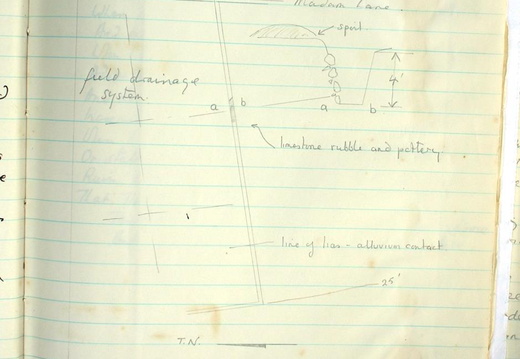 Madam Lane.
spoil
field drainage
system.
4'
a b
a b
limestone rubble and pottery
line of lias - alluvium contact
25'
T.N.